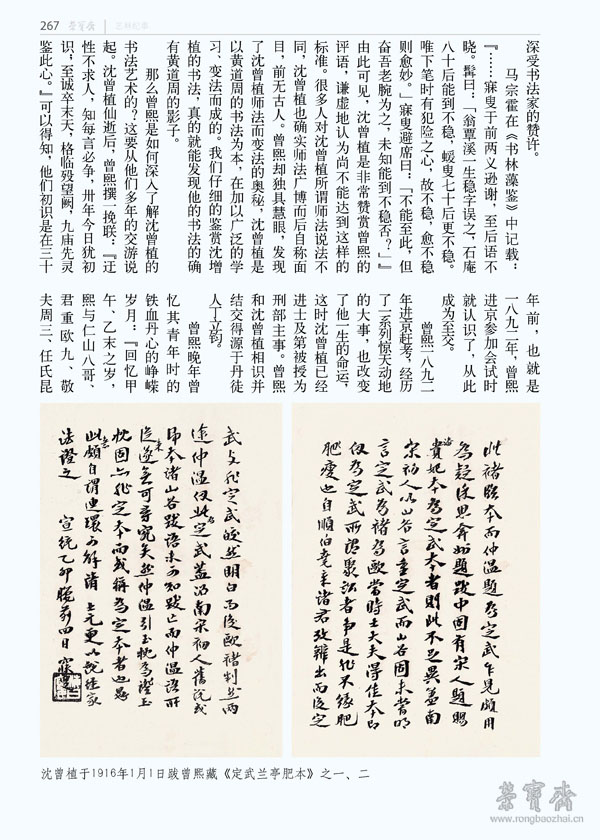 267 荣宝斋 艺林纪事
深受书法家的赞许。
马宗霍在《书林藻鉴》中记载：
『……寐叟于前两义逊谢，至后语不
晓。髯曰：「翁覃溪一生稳字误之，石庵
八十后能到不稳，蝯叟七十后更不稳。
唯下笔时有犯险之心，故不稳，愈不稳
则愈妙。」寐叟避席曰：「不能至此，但
奋吾老腕为之，未知能到不稳否？」』
由此可见，沈曾植是非常赞赏曾熙的
评语，谦虚地认为尚不能达到这样的
标准。很多人对沈曾植所谓师法说法不
同，沈曾植也确实师法广博而后自称面
目，前无古人。曾熙却独具慧眼，发现
了沈曾植师法而变法的奥秘，沈曾植是
以黄道周的书法为本，在加以广泛的学
习、变法而成的。我们仔细的鉴赏沈增
植的书法，真的就能发现他的书法的确
有黄道周的影子。
那么曾熙是如何深入了解沈曾植的
书法艺术的？这要从他们多年的交游说
起。沈曾植仙逝后，曾熙撰一挽联：『迂
性不求人，知每言必争，卅年今日犹初
识；至诚卒末天，格临殁望阙，九庙先灵
鉴此心。』可以得知，他们初识是在三十
年前，也就是
一八九二年，曾熙
进京参加会试时
就认识了，从此
成为至交。
曾熙一八九二
年进京赶考，经历
了一系列惊天动地
的大事，也改变
了他一生的命运，
这时沈曾植已经
进士及第被授为
刑部主事。曾熙
和沈曾植相识并
结交得源于丹徒
人丁立钧。
曾熙晚年曾
忆其青年时的
铁血丹心的峥嵘
岁月：『回忆甲
午、乙末之岁，
熙与仁山八哥、
君重欧九、敬
夫周三、任氏昆
此褚臨本而仲溫題為定武乍見頗用
為疑深思弇州題跋中固有宋人題賜
潘貴妃本為定武本者則此不足異蓋南
宋初人以山谷言重定武而山谷固未嘗明
言定武為褚為歐當時士大夫得佳本即
仞為定武所謂聚訟者爭是非不緣肥
瘦也自順伯堯章諸君攷辨出而後定
武與非定武皎然明白而後歐褚判然兩
途仲溫仞此定武蓋沿南宋初人舊說或
本諸山谷跋語未可知跋亡而仲溫語所
從來遂無可尋究矣仲溫引玉枕為證玉
枕固亦非定本而或稱為定本者也
此頗自謂連環可解請
法證之 宣統乙卯臘前四日 寐叟
沈曾植于1916年1月1日跋曾熙藏《定武兰亭肥本》之一、二
荣宝斋
www.rongbaozhai.cn